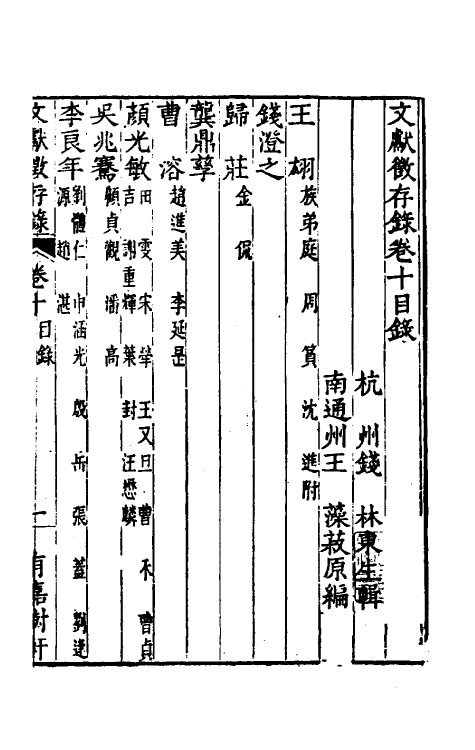 文獻徵存錄卷十目錄
杭州錢林東生輯
南通州王藻菽原編
王翃 族弟庭 周篔 沈進附
錢澄之
歸莊 金侃
龔鼎孳
曹溶 趙進美 李延昰
顏光敏 田雯 宋犖 王又旦 曹禾 曹貞
吉 謝重輝 葉封 汪懋麟
吳兆騫 顧貞觀 潘高
李良年 劉體仁 申涵光 殷岳 張蓋 劉逢
源 趙湛
文獻徵存錄 卷十目錄 一 有嘉樹軒